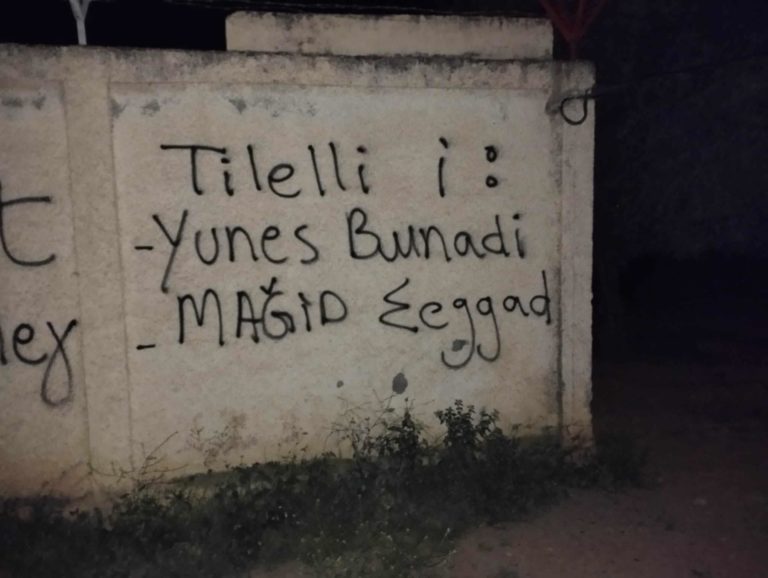 Tilelli i :
- Yunes Bunadi
- MAǦID Ɛeggad